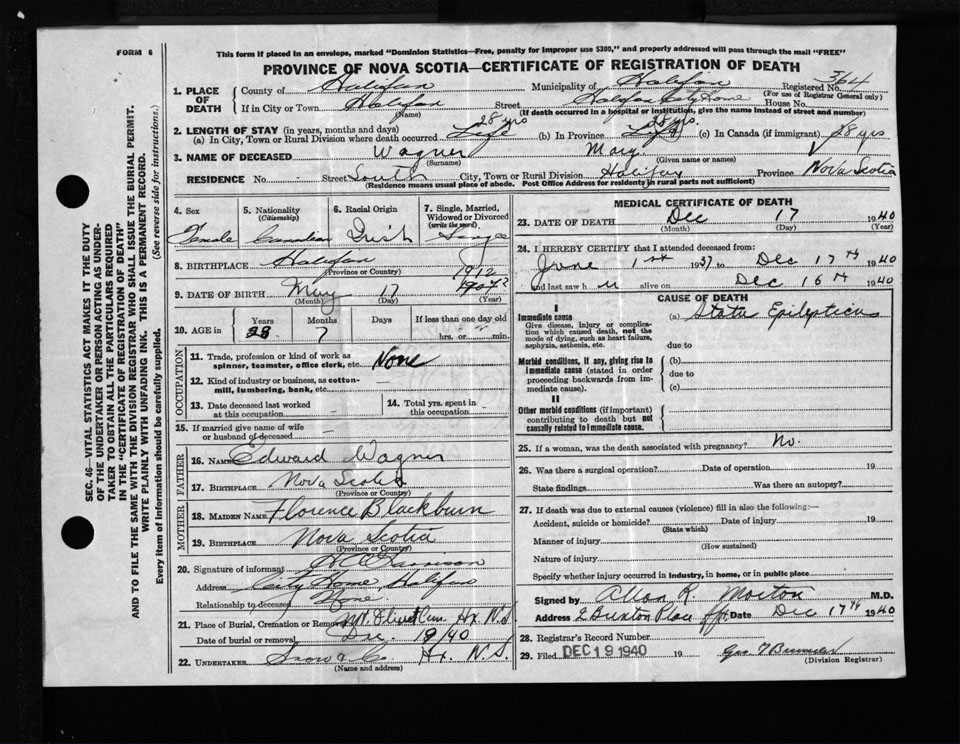 FORM 6
This form if placed in an envelope, marked "Dominion Statistics—Free, penalty for improper use $300," and properly addressed will pass through the mail "FREE"
PROVINCE OF NOVA SCOTIA—CERTIFICATE OF REGISTRATION OF DEATH
1. PLACE OF DEATH County of Halifax Municipality of Halifax Registered No. 364
(For use of Registrar General only)
If in City or Town Halifax Street Halifax City Home House No.
(Name) (If death occurred in a hospital or institution, give the name instead of street and number)
2. LENGTH OF STAY (in years, months and days) 28 yrs 28 yrs.
(a) In City, Town or Rural Division where death occurred Life (b) In Province Life (c) In Canada (if immigrant) 28 yrs
3. NAME OF DECEASED Wagner Mary
(Surname) (Given name or names)
RESIDENCE No. - Street South City, Town or Rural Division Halifax Province Nova Scotia
(Residence means usual place of abode. Post Office Address for residents in rural parts not sufficient)
4. Sex 5. Nationality (Citizenship) 6. Racial Origin 7. Single, Married, Widowed or Divorced (write the word)
Female Canadian Irish Single
8. BIRTHPLACE Halifax
(Province or Country)
1912
9. DATE OF BIRTH May 17
(Month) (Day) (Year)
10. AGE in Years Months Days If less than one day old
28 7 hrs. or min.
OCCUPATION
11. Trade, profession or kind of work as spinner, teamster, office clerk, etc. None
12. Kind of industry or business, as cotton-mill, lumbering, bank, etc.
13. Date deceased last worked at this occupation 14. Total yrs. spent in this occupation
15. If married give name of wife or husband of deceased
FATHER
16. Name Edward Wagner
17. BIRTHPLACE Nova Scotia
(Province or Country)
MOTHER
18. MAIDEN NAME Florence Blackburn
19. BIRTHPLACE Nova Scotia
(Province or Country)
20. Signature of informant
Address City Home Halifax
Relationship to deceased None
21. Place of Burial, Cremation or Removal Mt Olivet Cem Hx. N.S.
Date of burial or removal Dec. 19/40
22. UNDERTAKER Snow & Co Hx. N.S.
(Name and address)
MEDICAL CERTIFICATE OF DEATH
23. DATE OF DEATH Dec 17 1940
(Month) (Day) (Year)
24. I HEREBY CERTIFY that I attended deceased from:
June 1st 1937 to Dec 17th 1940
and last saw h er alive on Dec 16th 1940
CAUSE OF DEATH
I
Immediate cause (a) Status Epilepticus
Give disease, injury or complication which caused death, not the mode of dying, such as heart failure, asphyxia, asthenia, etc.
due to
Morbid conditions, if any, giving rise to immediate cause (stated in order proceeding backwards from immediate cause).
(b)
due to
(c)
II
Other morbid conditions (if important) contributing to death but not causally related to immediate cause.
25. If a woman, was the death associated with pregnancy? No.
26. Was there a surgical operation? Date of operation 19
State findings Was there an autopsy?
27. If death was due to external causes (violence) fill in also the following:—
Accident, suicide or homicide? Date of injury 19
(State which)
Manner of injury
(How sustained)
Nature of injury
Specify whether injury occurred in industry, in home, or in public place
Signed by Allan R. Morton M.D.
Address 2 Buxton Place Date Dec 17th 1940
28. Registrar's Record Number
29. Filed DEC 19 1940 19
(Division Registrar)
SEC. 46—VITAL STATISTICS ACT MAKES IT THE DUTY
OF THE UNDERTAKER OR PERSON ACTING AS UNDER-
TAKER TO OBTAIN ALL THE PARTICULARS REQUIRED
IN THE "CERTIFICATE OF REGISTRATION OF DEATH"
AND TO FILE THE SAME WITH THE DIVISION REGISTRAR WHO SHALL ISSUE THE BURIAL PERMIT.
WRITE PLAINLY WITH UNFADING INK. THIS IS A PERMANENT RECORD.
Every item of Information should be carefully supplied. (See reverse side for instructions.)